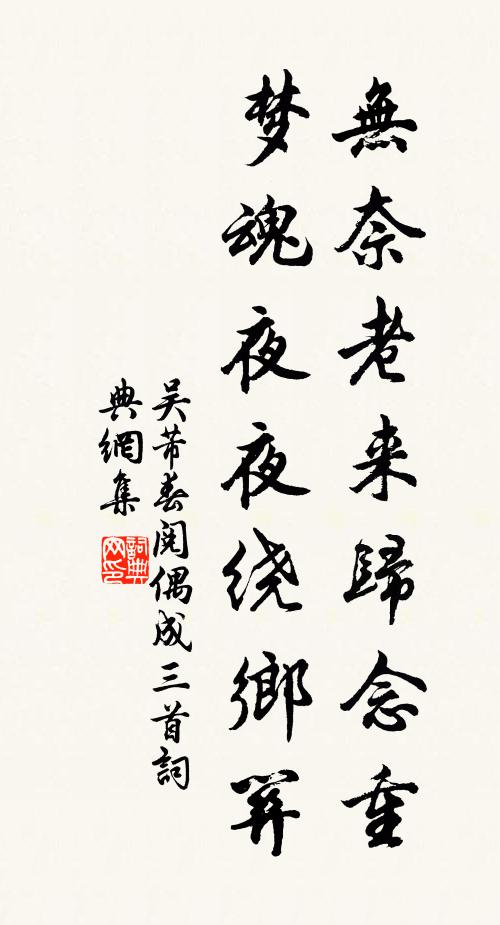 無奈老来歸念重
梦魂夜夜绕鄉関
吴芾春偶成三首詞
典網集
詞典
网印